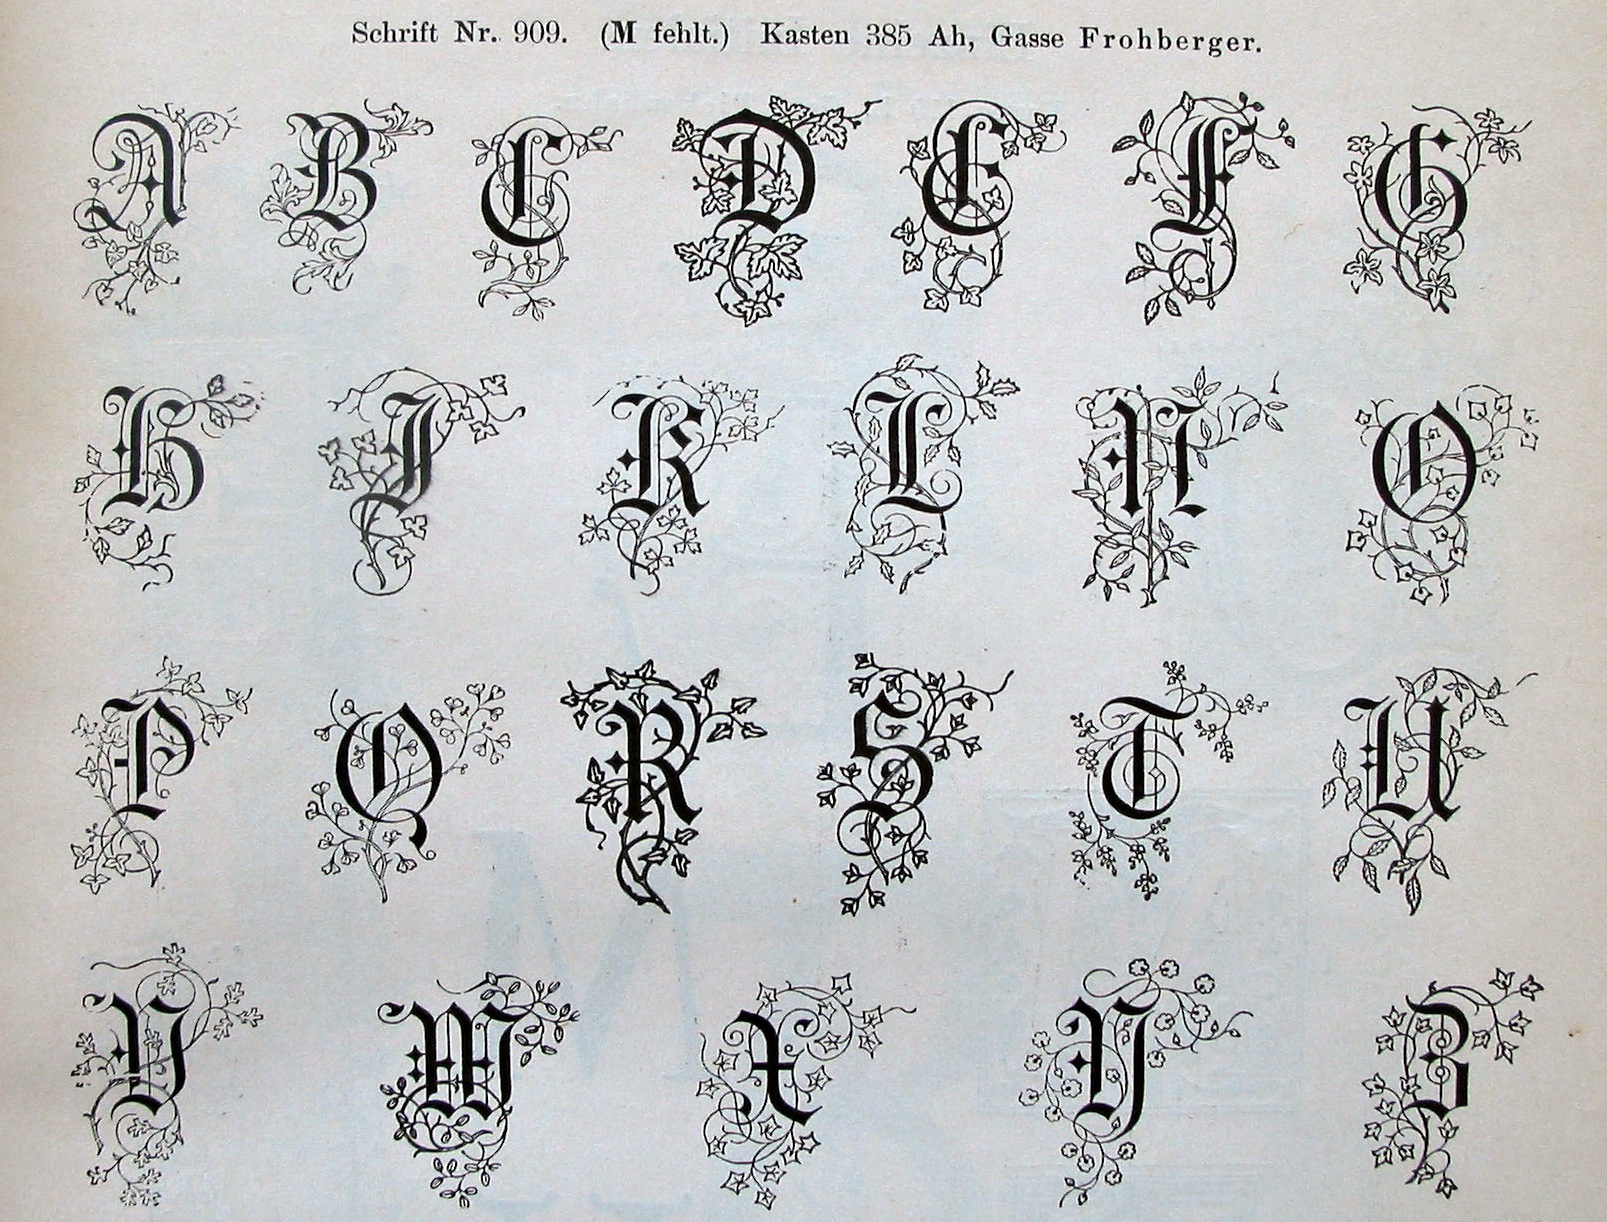 Schrift Nr. 909. (M fehlt.) Kasten 385 Ah, Gasse Frohberger.
A B C D E F G
H I K L N O
P Q R S T U
V W X Y Z